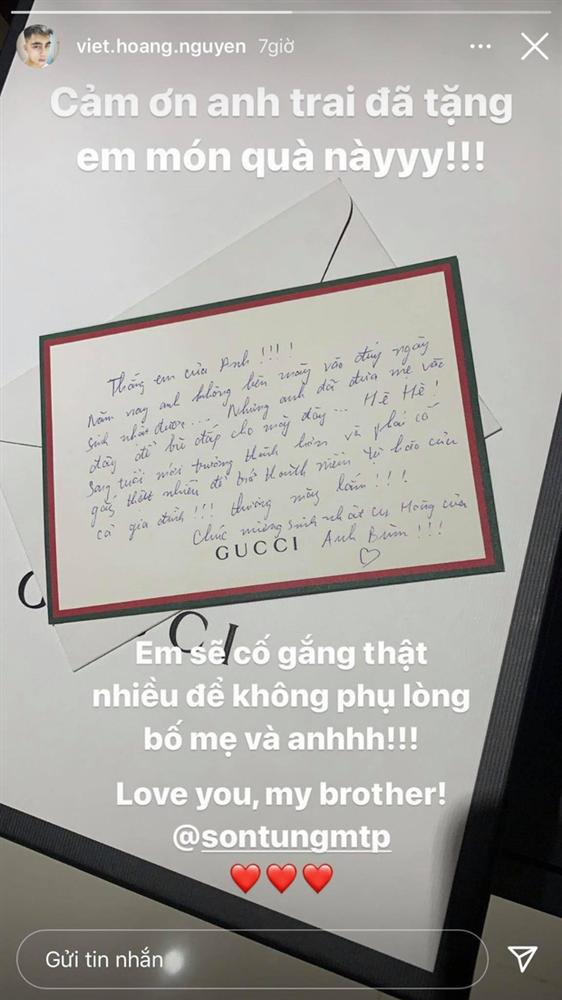 viet.hoang.nguyen 7giờ
Cảm ơn anh trai đã tặng
em món quà nàyyy!!!
Thằng em của Anh !!!!
Năm nay anh không bên mày vào đúng ngày
sinh nhật được... Nhưng anh đã đưa mẹ vào
đây để bù đắp cho mày đây... Hê Hê!
Sang tuổi mới trưởng thành hơn và phải cố
gắng thật nhiều để trở thành niềm tự hào của
cả gia đình!!! Thương mày lắm!!!
Chúc mừng sinh nhật Cu Hoàng của
Anh Bùm!!!
GUCCI
Em sẽ cố gắng thật
nhiều để không phụ lòng
bố mẹ và anhhh!!!
Love you, my brother!
@sontungmtp
Gửi tin nhắn